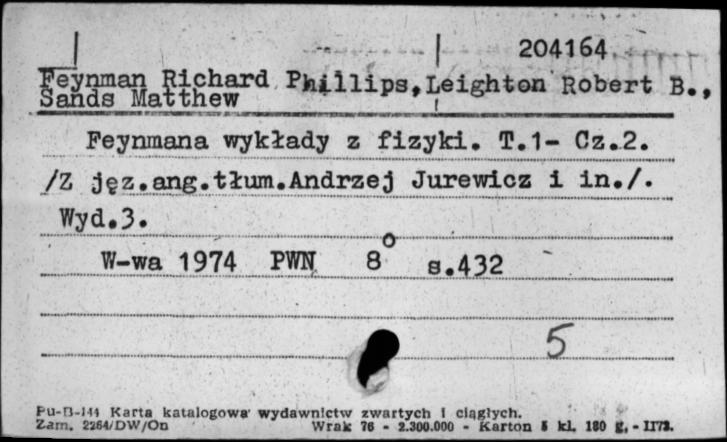 204164
Feynman Richard Phillips, Leighton Robert B.,
Sands Matthew
Feynmana wykłady z fizyki. T.1- Cz.2.
/Z jęz.ang.tłum.Andrzej Jurewicz i in./.
Wyd.3.
W-wa 1974 PWN 8o s.432
5
Pu-B-144 Karta katalogowa wydawnictw zwartych i ciągłych.
Zam. 2264/DW/On Wrak 76 - 2.300.000 - Karton 5 kl. 180 g. -